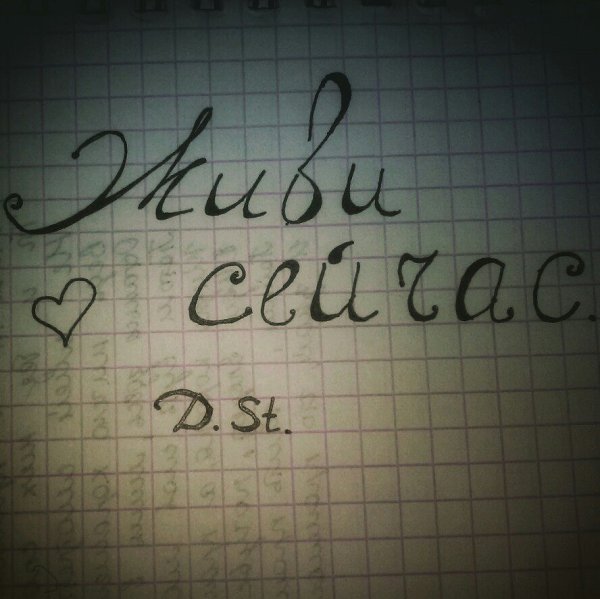 Живи
сейчас.
D. St.